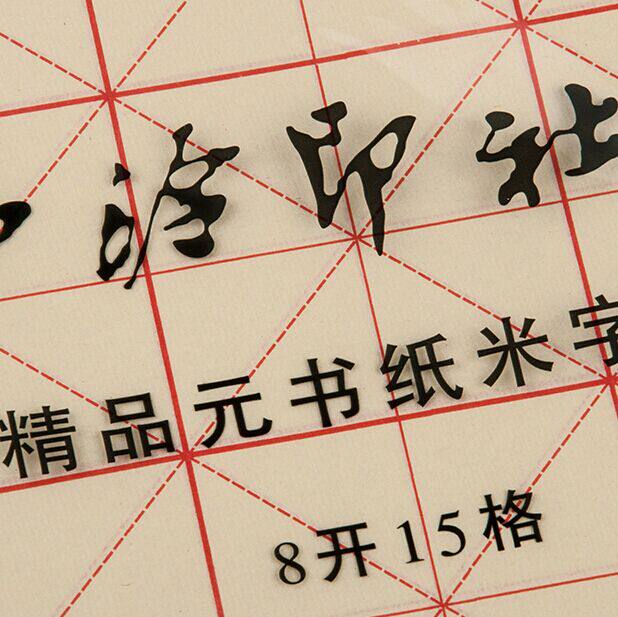 泠印社
精品元书纸米字
8开15格